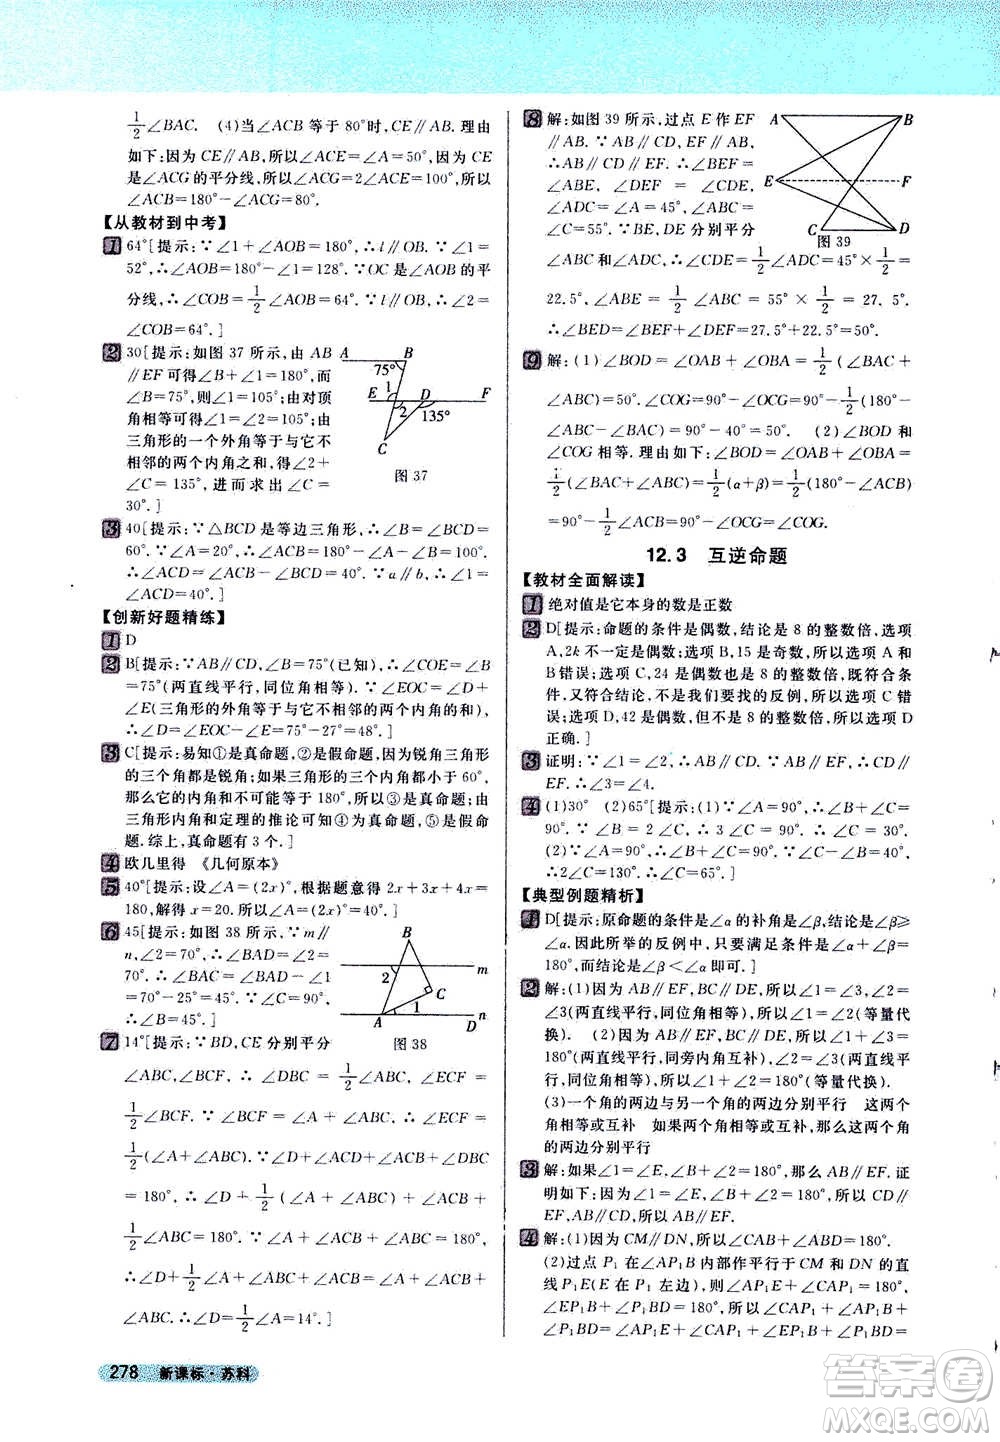 1/2∠BAC. (4)当∠ACB等于80°时,CE∥AB.理由
如下:因为CE∥AB,所以∠ECA=∠A=50°,因为CE
是∠ACG的平分线,所以∠ACG=2∠ACE=100°,所以
∠ACB=180°-∠ACG=80°.
【从教材到中考】
1 64°[提示:∵∠1+∠AOB=180°,∴l∥OB.∵∠1=
52°,∴∠AOB=180°-∠1=128°.∵OC是∠AOB的平
分线,∴∠COB=1/2∠AOB=64°.∵l∥OB,∴∠2=
∠COB=64°.]
2 30[提示:如图37所示,由AB
∥EF可得∠B+∠1=180°,而
∠B=75°,则∠1=105°;由对顶
角相等可得∠1=∠2=105°;由
三角形的一个外角等于与它不
相邻的两个内角之和,得∠2+
∠C=135°,进而求出∠C=
30°.]
A B 75° E 1 D F 2 135° C
图37
3 40[提示:∵△BCD是等边三角形,∴∠B=∠BCD=
60°.∵∠A=20°,∴∠ACB=180°-∠A-∠B=100°,
∴∠ACD=∠ACB-∠BCD=40°.∵a∥b,∴∠1=
∠ACD=40°.]
【创新好题精练】
1 D
2 B[提示:∵AB∥CD,∠B=75°(已知),∴∠COE=∠B
=75°(两直线平行,同位角相等),∵∠EOC=∠D+
∠E(三角形的外角等于与它不相邻的两个内角之和),
∴∠D=∠EOC-∠E=75°-27°=48°.]
3 C[提示:易知①是真命题,②是假命题,因为锐角三角形
的三个角都是锐角;如果三角形的三个内角都小于60°,
那么它的内角和不可能等于180°,所以③是真命题;由
三角形内角和定理的推论可知④为真命题,⑤是假命
题.综上,真命题有3个.]
4 欧几里得 《几何原本》
5 40°[提示:设∠A=(2x)°,根据题意得2x+3x+4x=
180,解得x=20.所以∠A=(2x)°=40°.]
6 45[提示:如图38所示,∵m∥
n,∠2=70°,∴∠BAD=∠2=
70°.∴∠BAC=∠BAD-∠1
=70°-25°=45°.∵∠C=
90°,∴∠B=90°-45°=45°.]
B 2 m C A 1 D n
图38
7 14°[提示:∵BD,CE分别平分
∠ABC,∠BCF,∴∠DBC=1/2∠ABC,∠ECF=
1/2∠BCF.∵∠BCF=∠A+∠ABC,∴∠ECF=
1/2(∠A+∠ABC).∵∠D+∠DBC+∠BCE+∠ECF
=180°,∴∠D+1/2(∠A+∠ABC)+∠ACB+
1/2∠ABC=180°.∵∠A+∠ABC+∠ACB=180°,
∴∠D+1/2∠A+∠ABC+∠ACB=∠A+∠ACB+
∠ABC.∴∠D=1/2∠A=14°.]
278 新课标·苏科
8 解:如图39所示,过点E作EF
∥AB.∵AB∥CD,EF∥AB,
∴AB∥CD∥EF.∴∠BEF=
∠ABE,∠DEF=∠CDE.∵
∠D=∠A=45°,∠ABC=
∠C=55°.∵BE,DE分别平分
A B E F C D
图39
∠ABC和∠ADC,∴∠CDE=1/2∠ADC=45°×1/2=
22.5°,∠ABE=1/2∠ABC=55°×1/2=27.5°.
∴∠BED=∠BEF+∠DEF=27.5°+22.5°=50°.
9 解:(1)∠BOD=∠OAB+∠OBA=1/2(∠BAC+
∠ABC)=50°.∠COG=90°-∠OCG=90°-1/2(180°-
∠ABC-∠BAC)=90°-40°=50°. (2)∠BOD和
∠COG相等.理由如下:∵∠BOD=∠OAB+∠OBA=
1/2(∠BAC+∠ABC)=1/2(α+β)=1/2(180°-∠ACB)
=90°-1/2∠ACB=90°-∠OCG=∠COG.
12.3 互逆命题
【教材全面解读】
1 绝对值是它本身的数是正数
2 D[提示:命题的条件是偶数,结论是8的整数倍,选项
A,2k不一定是偶数;选项B,15是奇数,所以选项A和
B错误;选项C,24是偶数也是8的整数倍,既符合条
件,又符合结论,不是我们要找的反例,所以选项C错
误;选项D,42是偶数,但不是8的整数倍,所以选项D
正确.]
3 证明:∵∠1=∠2,∴AB∥CD.∵AB∥EF,∴CD∥
EF.∴∠3=∠4.
4 (1)30° (2)65°[提示:(1)∵∠A=90°,∠B=60°,
∠B=2∠C,∴3∠C=90°.∴∠C=30°.
(2)∵∠A=50°,∠B=∠C,∠A+∠B+∠C=180°,
∴2∠C=130°.∴∠C=65°.]
【典型例题精析】
1 D[提示:原命题的条件是∠α的补角是∠β,结论是∠β≥
∠α.因此所举的反例中,只要满足条件∠α+∠β=
180°,而结论是∠β<∠α即可.]
2 解:(1)因为AB∥EF,BC∥DE,所以∠1=∠3,∠2=
∠3(两直线平行,同位角相等).所以∠1=∠2(等量代
换). (2)因为AB∥EF,BC∥DE,所以∠1+∠3=
180°(两直线平行,同旁内角互补),∠2=∠3(两直线
平行,内错角相等).所以∠1+∠2=180°(等量代换).
(3)一个角的两边与另一个角的两边分别平行 这两个
角相等或互补 如果两个角相等或互补,那么这两个角
的两边分别平行
3 解:如果∠1=∠E,∠B+∠2=180°,那么AB∥EF.证
明如下:因为∠B+∠2=180°,所以AB∥CD.
因为∠1=∠E,所以CD∥EF.所以AB∥EF.
4 解:(1)因为CM∥DN,所以∠CAB+∠ABD=180°.
(2)过点P₁在∠AP₁B内部作平行于CM和DN的直
线P₁E(E在P₁左边),则∠AP₁E+∠CAP₁=180°,
∠EP₁B+∠P₁BD=180°,所以∠CAP₁+∠AP₁E+
∠EP₁B+∠P₁BD=360°,即∠CAP₁+∠AP₁B+
答案圈
MXQE.COM